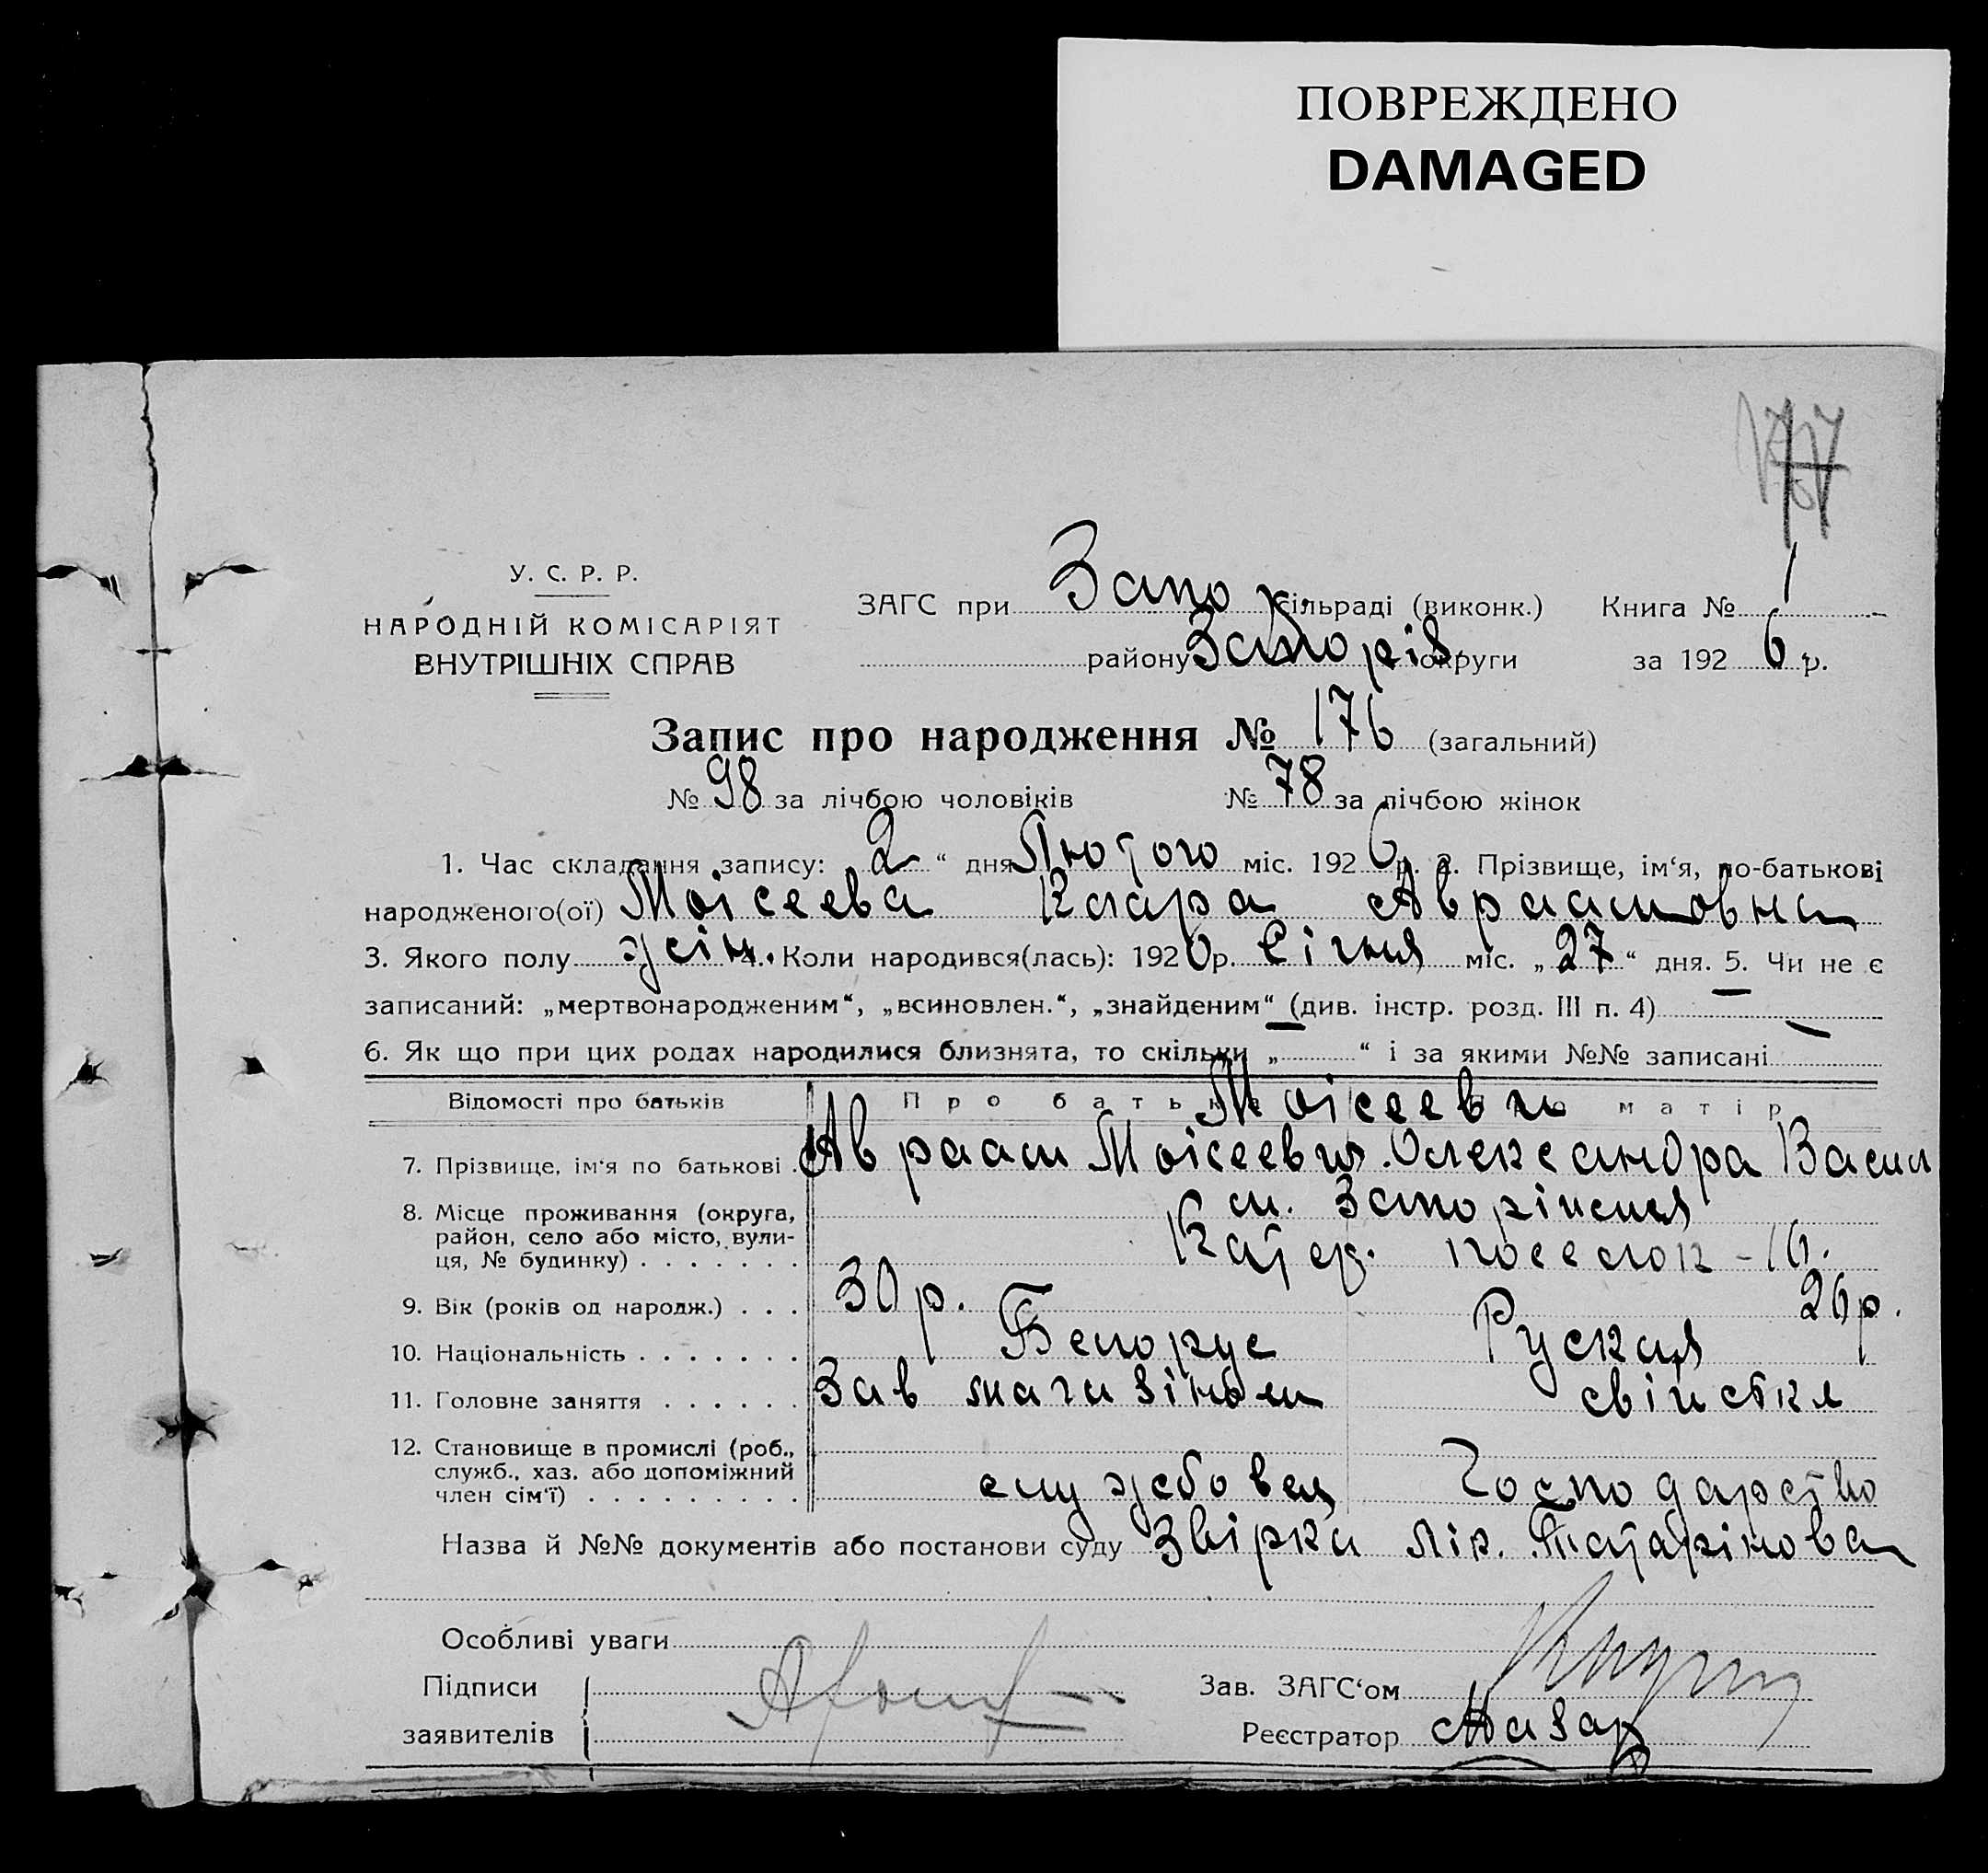 ПОВРЕЖДЕНО
DAMAGED
У. С. Р. Р.
НАРОДНІЙ КОМІСАРІЯТ
ВНУТРІШНІХ СПРАВ
ЗАГС при Запор. сільраді (виконк.) Книга № 1
району Запоріз. округи за 1926 р.
Запис про народження № 176 (загальний)
№ 98 за лічбою чоловіків № 78 за лічбою жінок
1. Час складання запису: 2 “ дня Лютого міс. 1926 р. 2. Прізвище, ім‘я, по-батькові
народженого(ої) Моісеева Клара Авраамовна
3. Якого полу жін. 4. Коли народився(лась): 1926 р. Січня міс. „27“ дня. 5. Чи не є
записаний: „мертвонародженим“, „всиновлен.“, „знайденим“ (див. інстр. розд. III п. 4)
6. Як що при цих родах народилися близнята, то скільки „ “ і за якими №№ записані
Відомості про батьків Про батька Про матір
Моісееви
7. Прізвище, ім‘я по батькові . Авраам Моісеевич. Олександра Васил
8. Місце проживання (округа, район, село або місто, вулиця, № будинку) . . . . . . . м. Запоріжжя
Катер. поселок - 16.
9. Вік (років од народж.) . . . 30 р. 26 р.
10. Національність . . . . . . . Белорус Руская
11. Головне заняття . . . . . . Зав магазіном свійстка
12. Становище в промислі (роб., служб., хаз. або допоміжний член сім‘ї) . . . . . . . . . службовец Господарство
Назва й №№ документів або постанови суду Звірка лік. Татарінова
Особливі уваги
Підписи
заявителів
Зав. ЗАГС‘ом
Реєстратор Назар